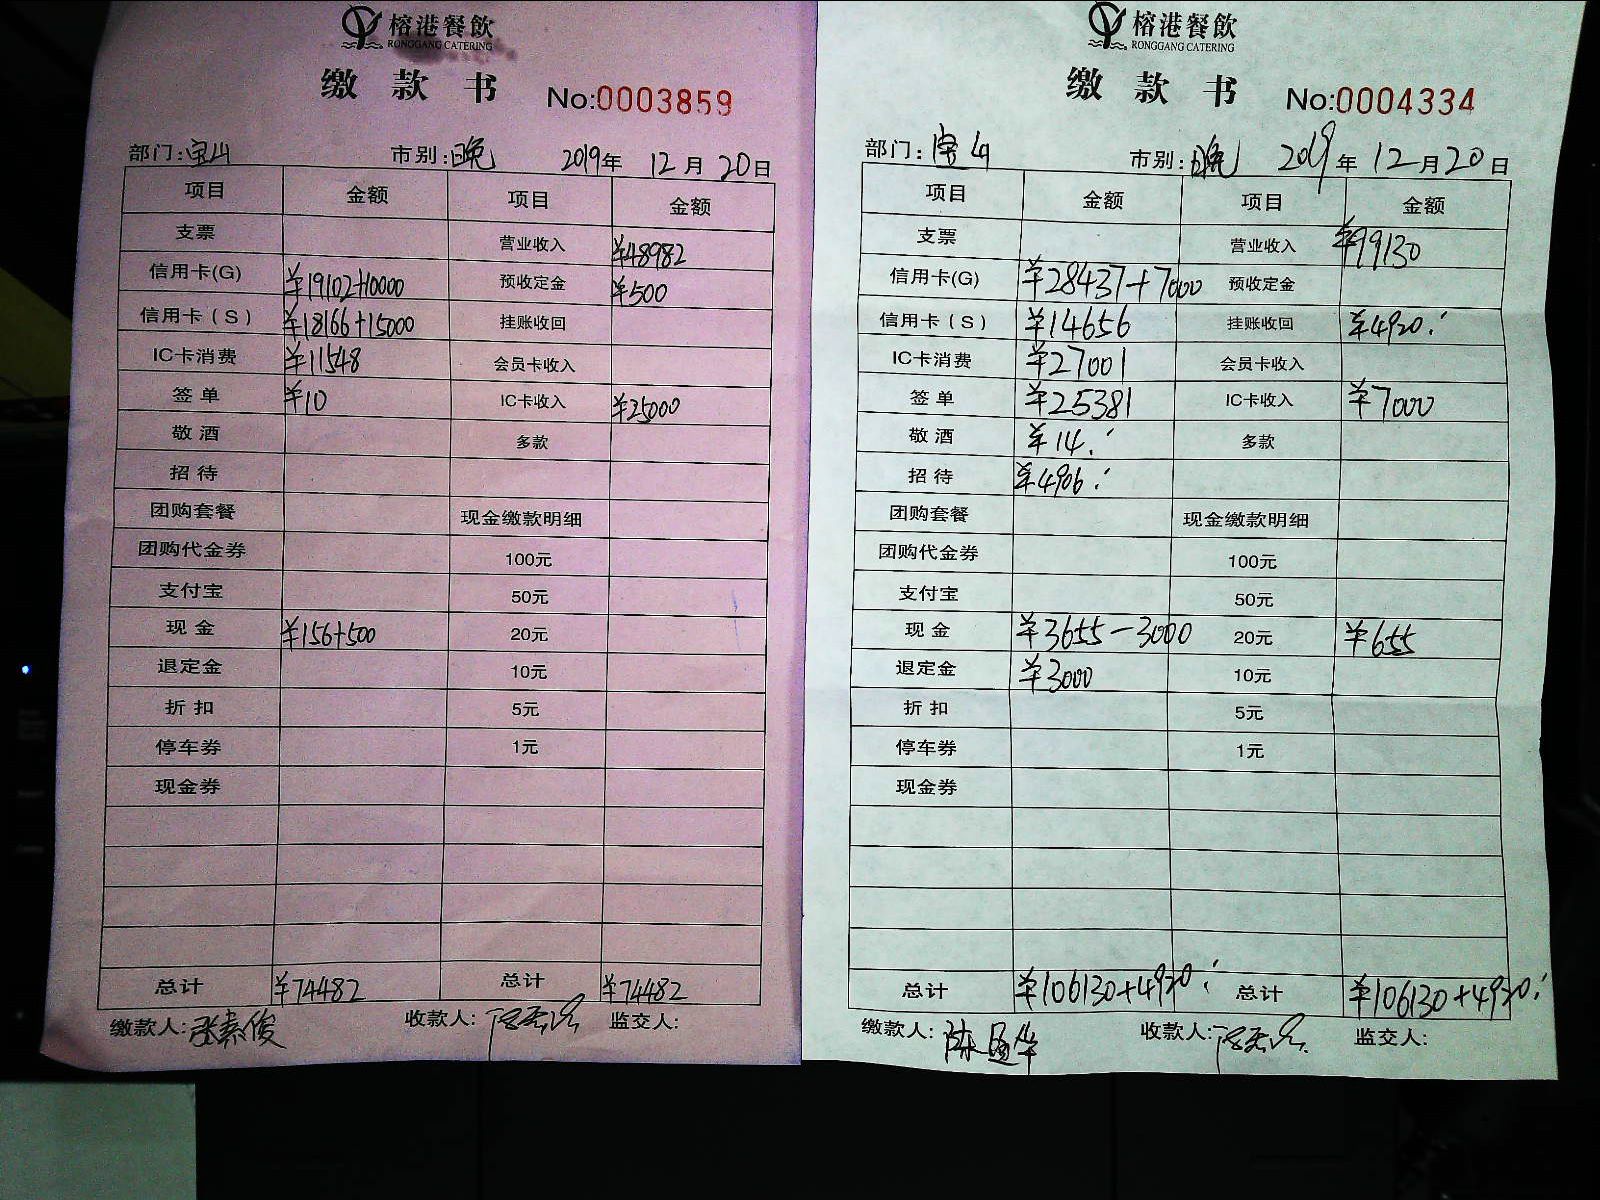 榕港餐飲
RONGGANG CATERING
缴款书 No:0003859
部门:宝山 市别:晚 2019年 12月 20日
项目 金额 项目 金额
支票 营业收入 ¥48982
信用卡(G) ¥19102+10000 预收定金 ¥500
信用卡(S) ¥18166+15000 挂账收回
IC卡消费 ¥11548 会员卡收入
签单 ¥10 IC卡收入 ¥25000
敬酒 多款
招待
团购套餐 现金缴款明细
团购代金券 100元
支付宝 50元
现金 ¥156+500 20元
退定金 10元
折扣 5元
停车券 1元
现金券
总计 ¥74482 总计 ¥74482
缴款人:张素俊 收款人: 监交人:
榕港餐飲
RONGGANG CATERING
缴款书 No:0004334
部门:宝山 市别:晚 2019年 12月20日
项目 金额 项目 金额
支票 营业收入 ¥99130
信用卡(G) ¥28437+7000 预收定金
信用卡(S) ¥14656 挂账收回 ¥4920.
IC卡消费 ¥27001 会员卡收入
签单 ¥25381 IC卡收入 ¥7000
敬酒 ¥14. 多款
招待 ¥4906.
团购套餐 现金缴款明细
团购代金券 100元
支付宝 50元
现金 ¥3655-3000 20元 ¥655
退定金 ¥3000 10元
折扣 5元
停车券 1元
现金券
总计 ¥106130+4920. 总计 ¥106130+4920.
缴款人: 收款人: 监交人: